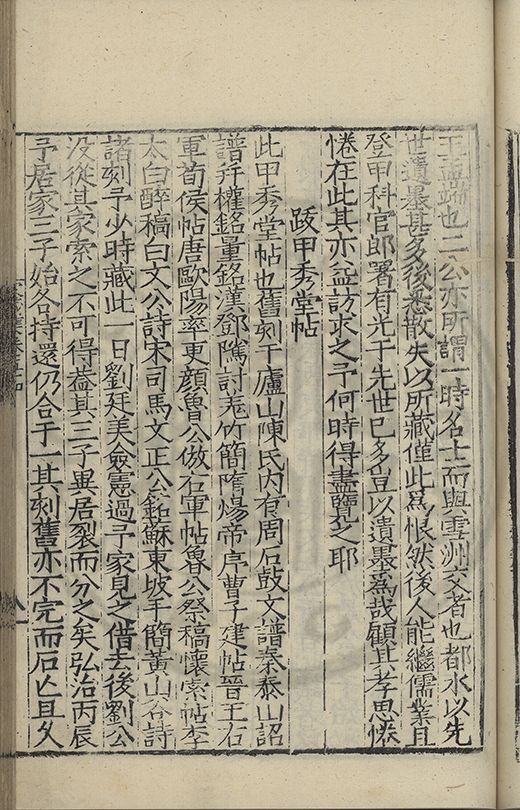 王孟端也二公亦所謂一時名士而與雲洲交者也都水以先
世遺墨甚多後悉散失以所藏僅此爲恨然後人能繼儒業且
登甲科官郎署有光于先世已多豈以遺墨爲哉顧其孝思惓
惓在此其亦益訪求之予何時得盡覽之耶
跋甲秀堂帖
此甲秀堂帖也舊刻于廬山陳氏內有周石鼓文譜秦泰山詔
譜幷權銘量銘漢鄧隲討羗竹簡隋煬帝序曹子建帖晉王右
軍荀侯帖唐歐陽率更顏魯公倣右軍帖魯公祭稿懷素帖李
太白醉稿白文公詩宋司馬文正公銘蘇東坡手簡黃山谷詩
諸刻予少時藏此一日劉廷美僉憲過予家見之借去後劉公
没從其家索之不可得葢其三子異居裂而分之矣弘治丙辰
予居家三子始各持還仍合于一其刻舊亦不完而石亡且久